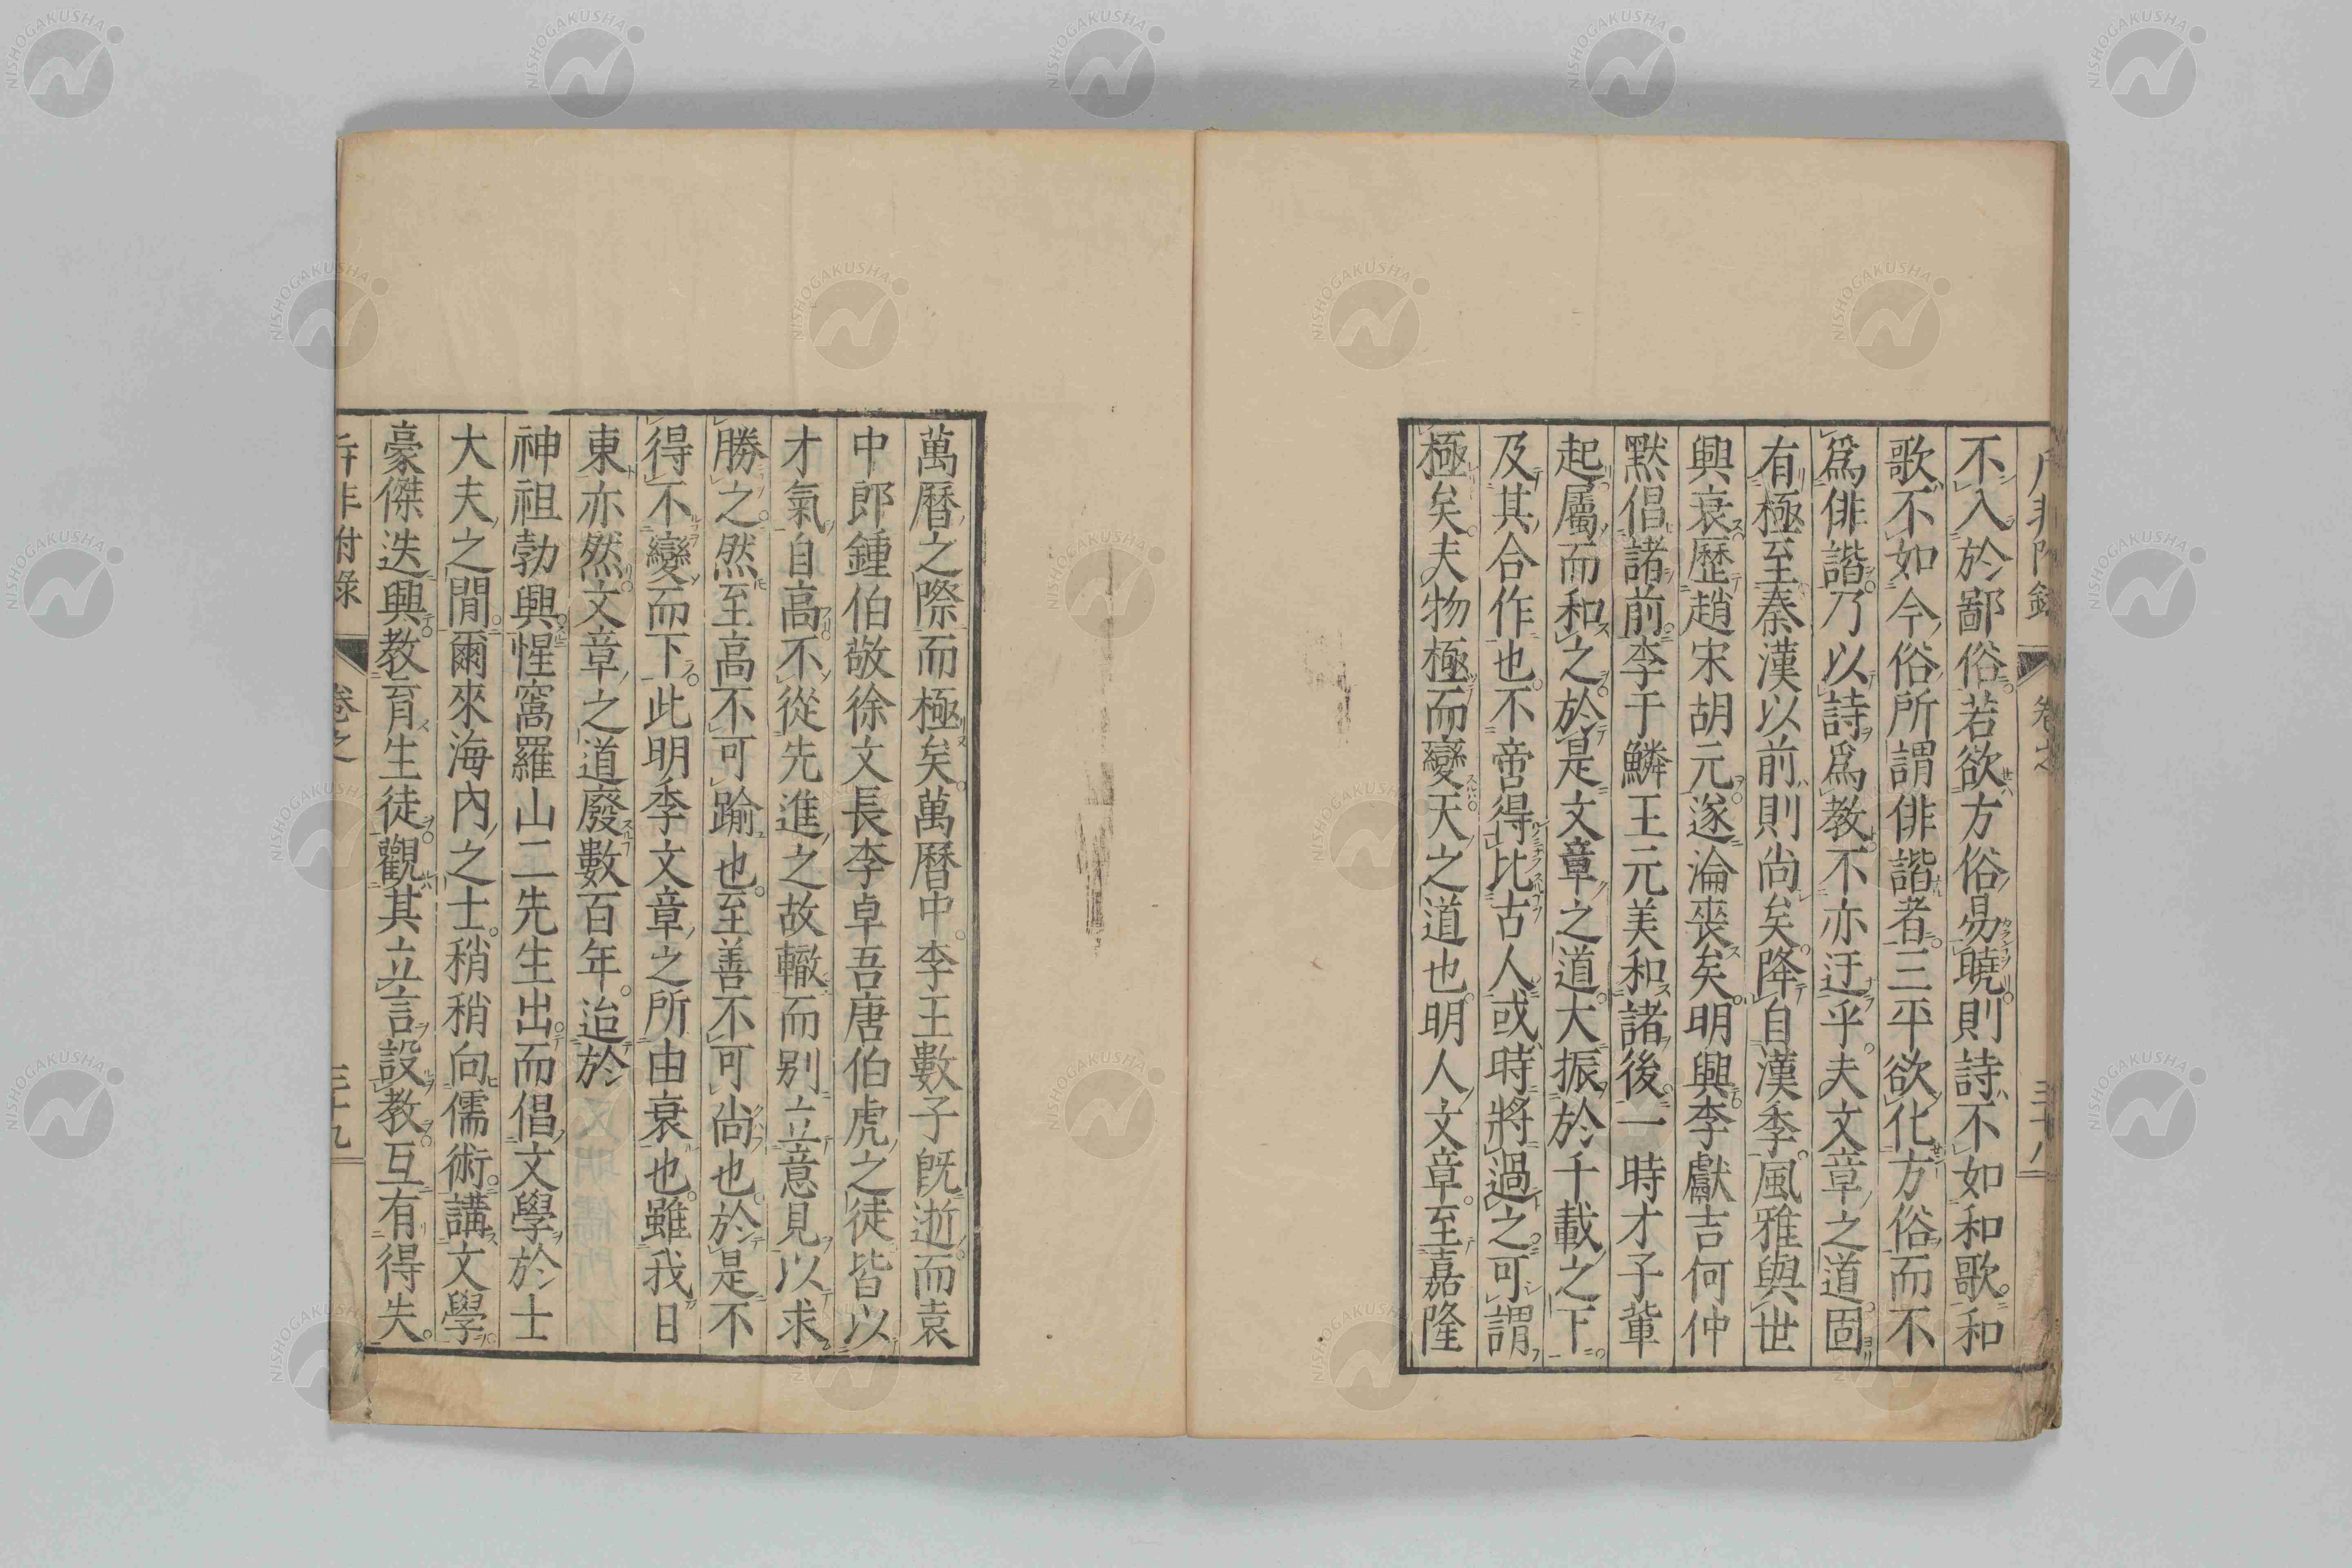 不入於鄙俗若欲方俗易曉則詩不如和歌和
歌不如今俗所謂俳諧者三平欲化方俗而不
爲俳諧乃以詩爲教不亦迂乎夫文章之道固
有極至秦漢以前則尚矣降自漢季風雅與世
興衰歷趙宋胡元遂淪喪矣明興李獻吉何仲
默倡諸前李于鱗王元美和諸後一時才子輩
起屬而和之於是文章之道大振於千載之下
及其合作也不啻得比古人或時將過之可謂
極矣夫物極而變天之道也明人文章至嘉隆
萬曆之際而極矣萬曆中李王數子旣逝而袁
中郎鍾伯敬徐文長李卓吾唐伯虎之徒皆以
才氣自高不從先進之故轍而別立意見以求
勝之然至高不可踰也至善不可尚也於是不
得不變而下此明季文章之所由衰也雖我日
東亦然文章之道廢數百年迨於
神祖勃興惺窩羅山二先生出而倡文學於士
大夫之間爾來海內之士稍稍向儒術講文學
豪傑迭興教育生徒觀其立言設教互有得失
斥非附錄 卷之 三十九